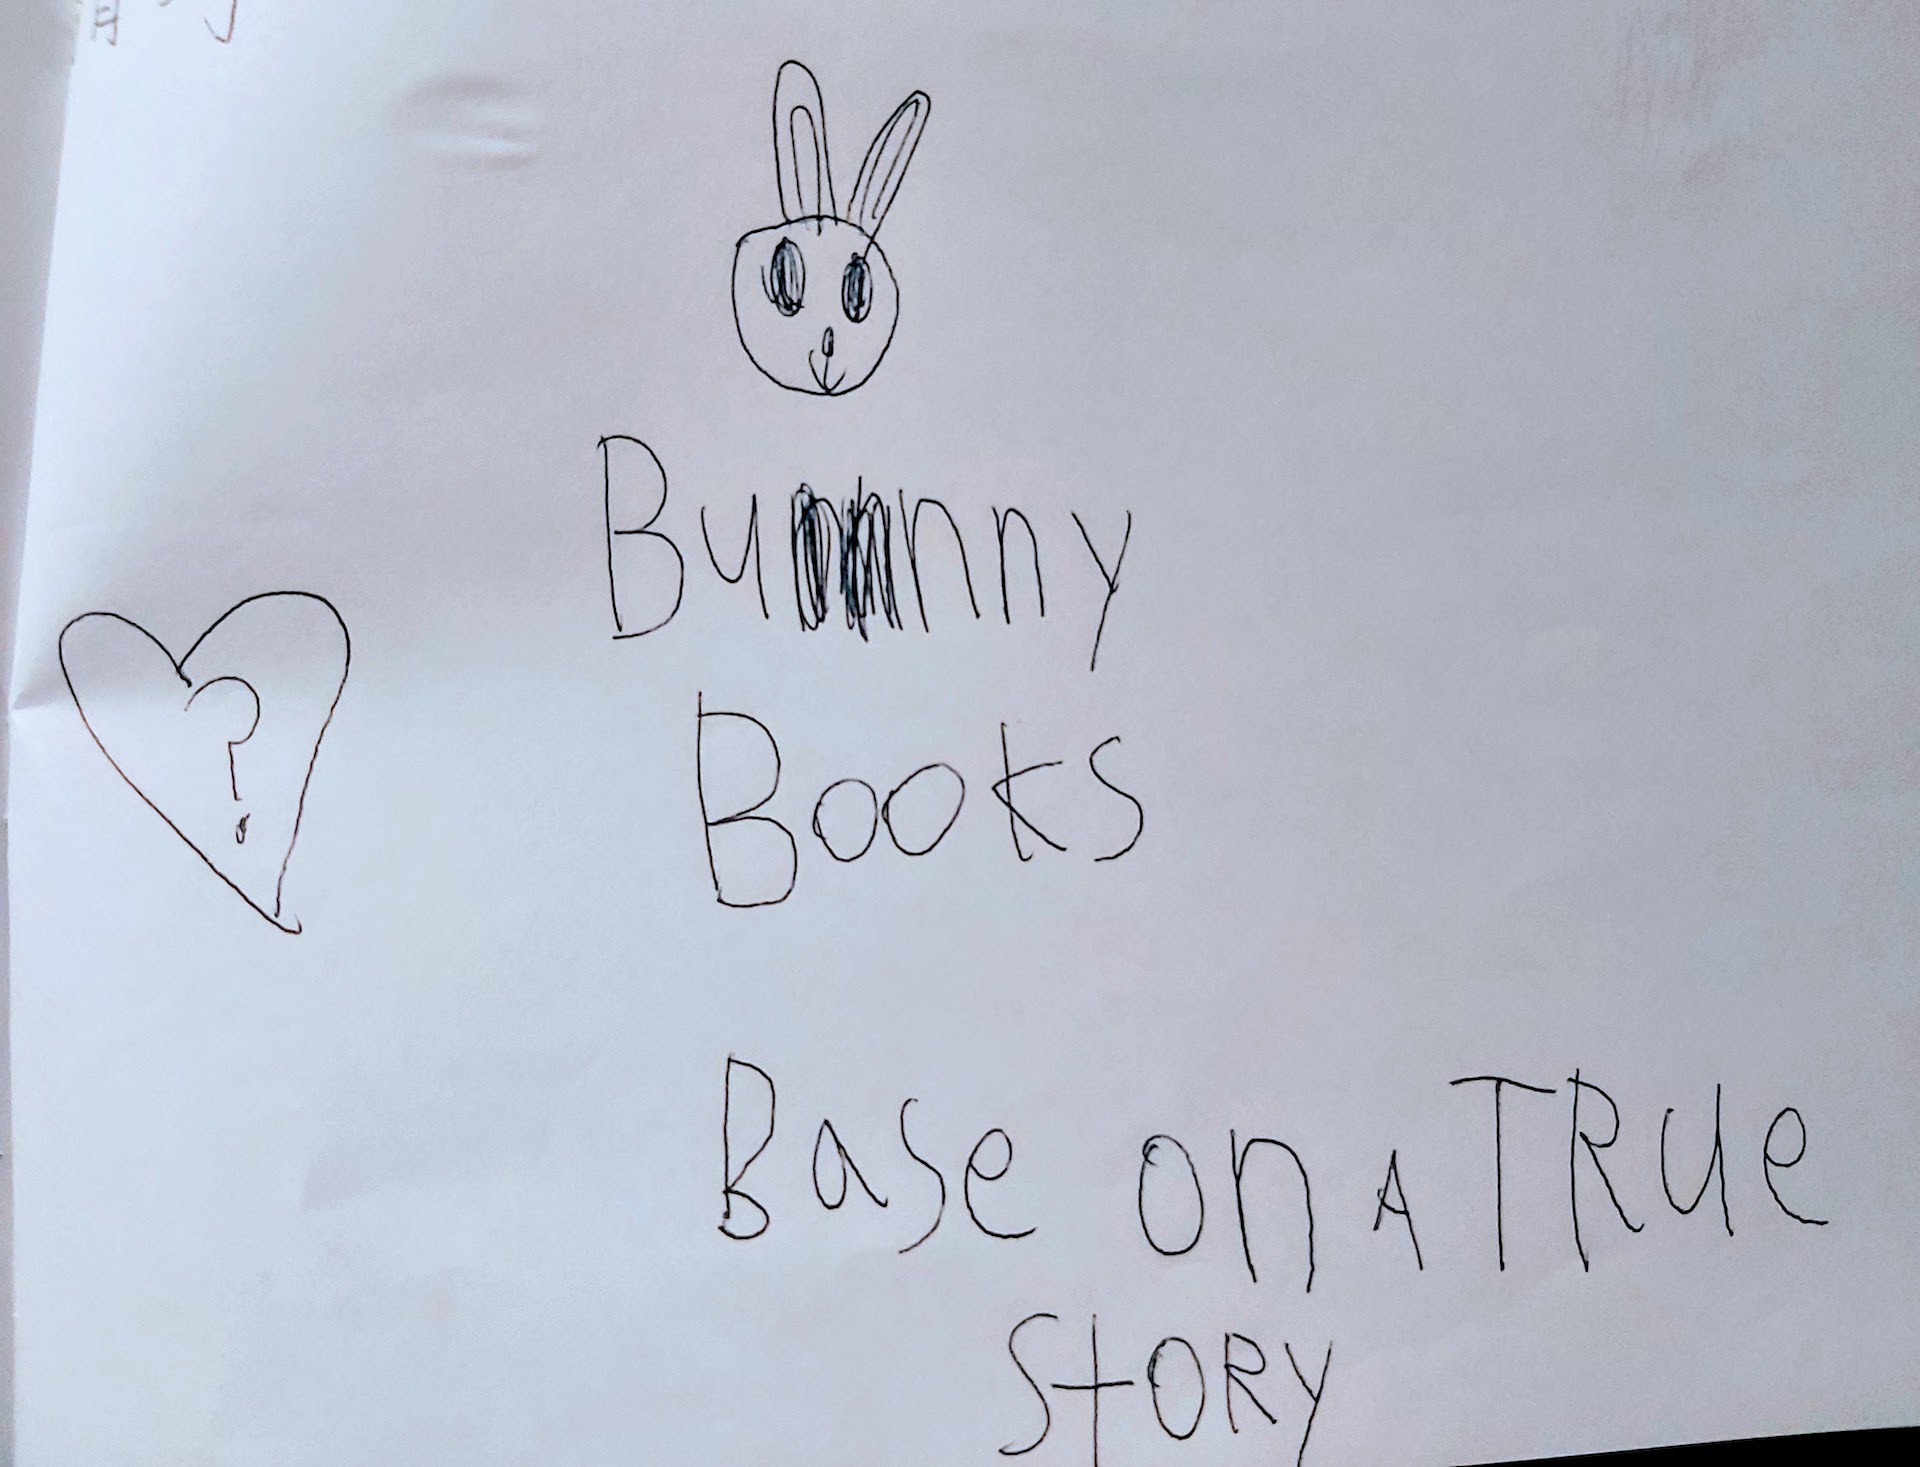 Bunny
Books
?
Base on A TRue
StORy